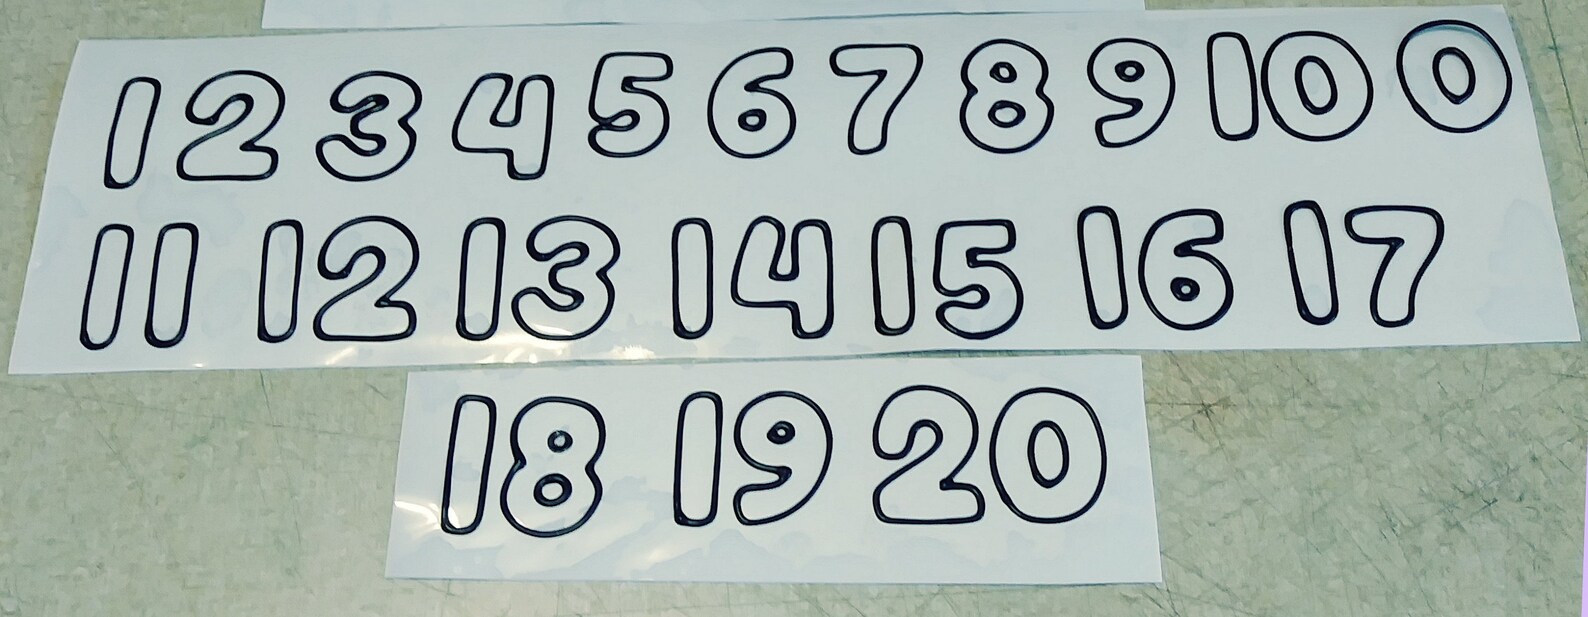 1 2 3 4 5 6 7 8 9 10 0
11 12 13 14 15 16 17
18 19 20